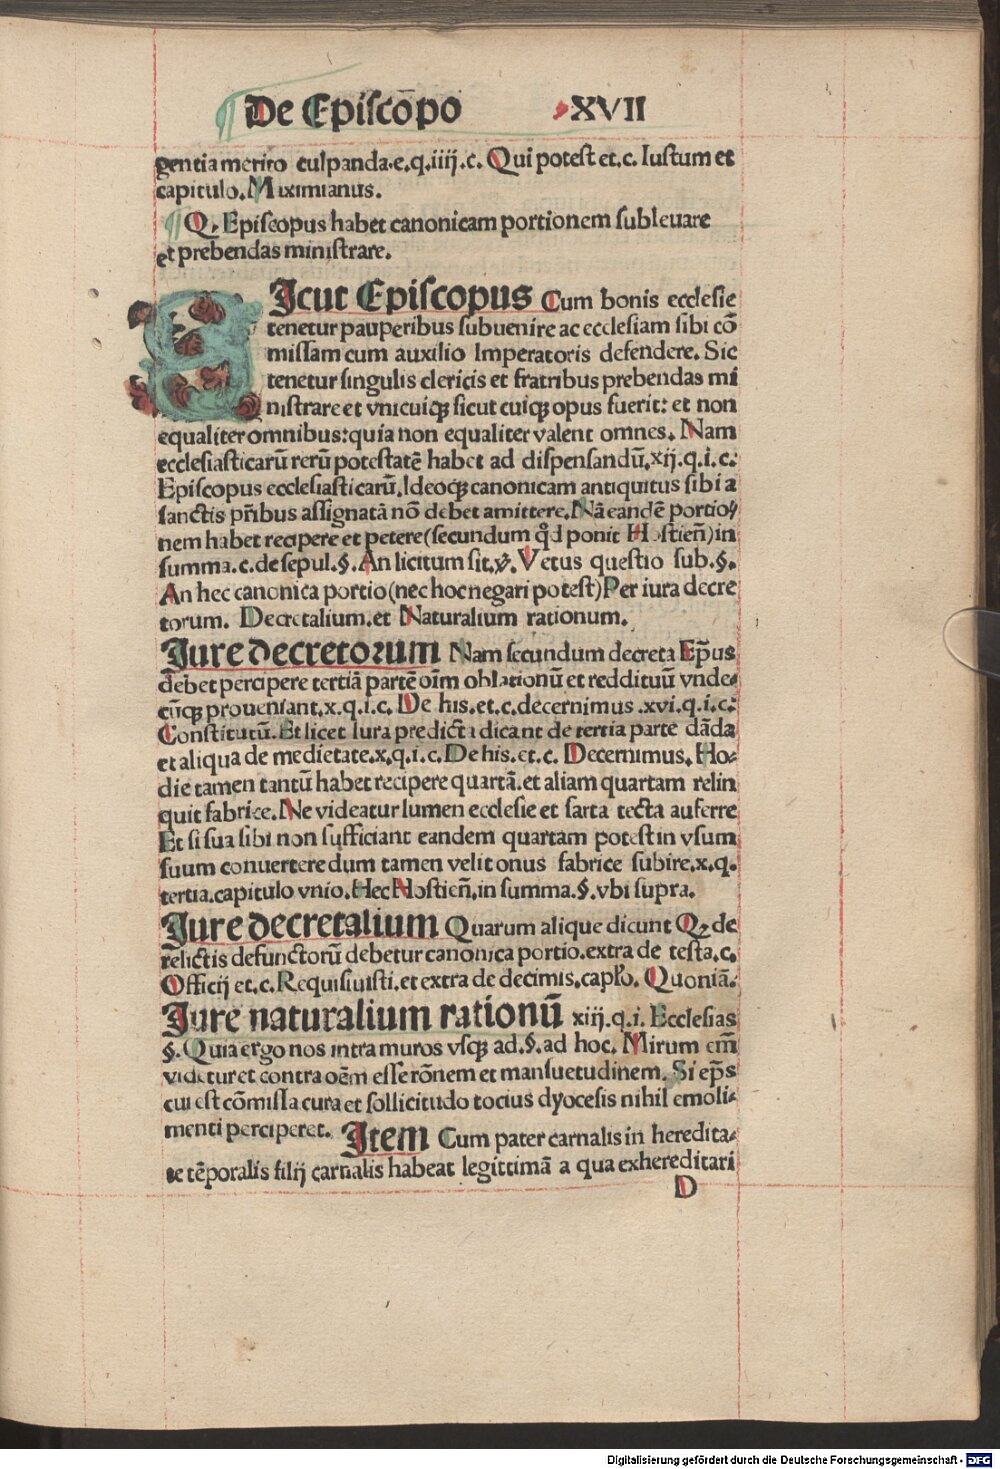 De Episcōpo XVII
gentia merito culpanda.e.q.iiij.c. Qui potest et.c. Iustum et
capitulo. Miximianus.
¶ Q, Episcopus habet canonicam portionem subleuare
et prebendas ministrare.
SIcut Episcopus Cum bonis ecclesie
tenetur pauperibus subuenire ac ecclesiam sibi cō
missam cum auxilio Imperatoris defendere. Sic
tenetur singulis clericis et fratribus prebendas mi
nistrare et vnicuiqꝫ sicut cuiqꝫ opus fuerit: et non
equaliter omnibus: quia non equaliter valent omnes. Nam
ecclesiasticarū rerū potestatē habet ad dispensandū.xij.q.i.c:
Episcopus ecclesiasticarū. Ideoqꝫ canonicam antiquitus sibi a
sanctis pr̄ibus assignatā nō debet amittere. Nā eandē portio⸗
nem habet recipere et petere (secundum qd̊ ponit Hostien̄) in
summa.c.de sepul.§. An licitum sit.ꝟ. Vetus questio sub.§.
An hec canonica portio (nec hoc negari potest) Per iura decre
torum. Decretalium. et Naturalium rationum.
Jure decretorum Nam secundum decreta Ep̄us
debet percipere tertiā partē oīm oblationū et reddituū vnde⸗
cūqꝫ proueniant.x.q.i.c. De his.et.c.decernimus .xvi.q.i.c:
Constitutū. Et licet Iura predicta dicant de tertia parte dāda
et aliqua de medietate.x.q.i.c. De his.et.c. Decernimus. Ho⸗
die tamen tantū habet recipere quartā.et aliam quartam relin
quit fabrice. Ne videatur lumen ecclesie et sarta tecta auferre
Et si sua sibi non sufficiant eandem quartam potest in vsum
suum conuertere dum tamen velit onus fabrice subire.x.q.
tertia.capitulo vnio. Hec Hostien̄, in summa.§.vbi supra.
Jure decretalium Quarum alique dicunt Q, de
relictis defunctorū debetur canonica portio.extra de testa.c.
Officij et.c. Requisiuisti.et extra de decimis.capło. Quoniā.
Jure naturalium rationū xiij.q.i. Ecclesias
§. Quia ergo nos intra muros vsqꝫ ad.§.ad hoc. Mirum em̄
videtur et contra oēm esse rōnem et mansuetudinem. Si ep̄s
cui est cōmissa cura et sollicitudo tocius dyocesis nihil emoli⸗
menti perciperet. Item Cum pater carnalis in heredita⸗
te tēporalis filij carnalis habeat legittimā a qua exhereditari
D
Digitalisierung gefördert durch die Deutsche Forschungsgemeinschaft - DFG